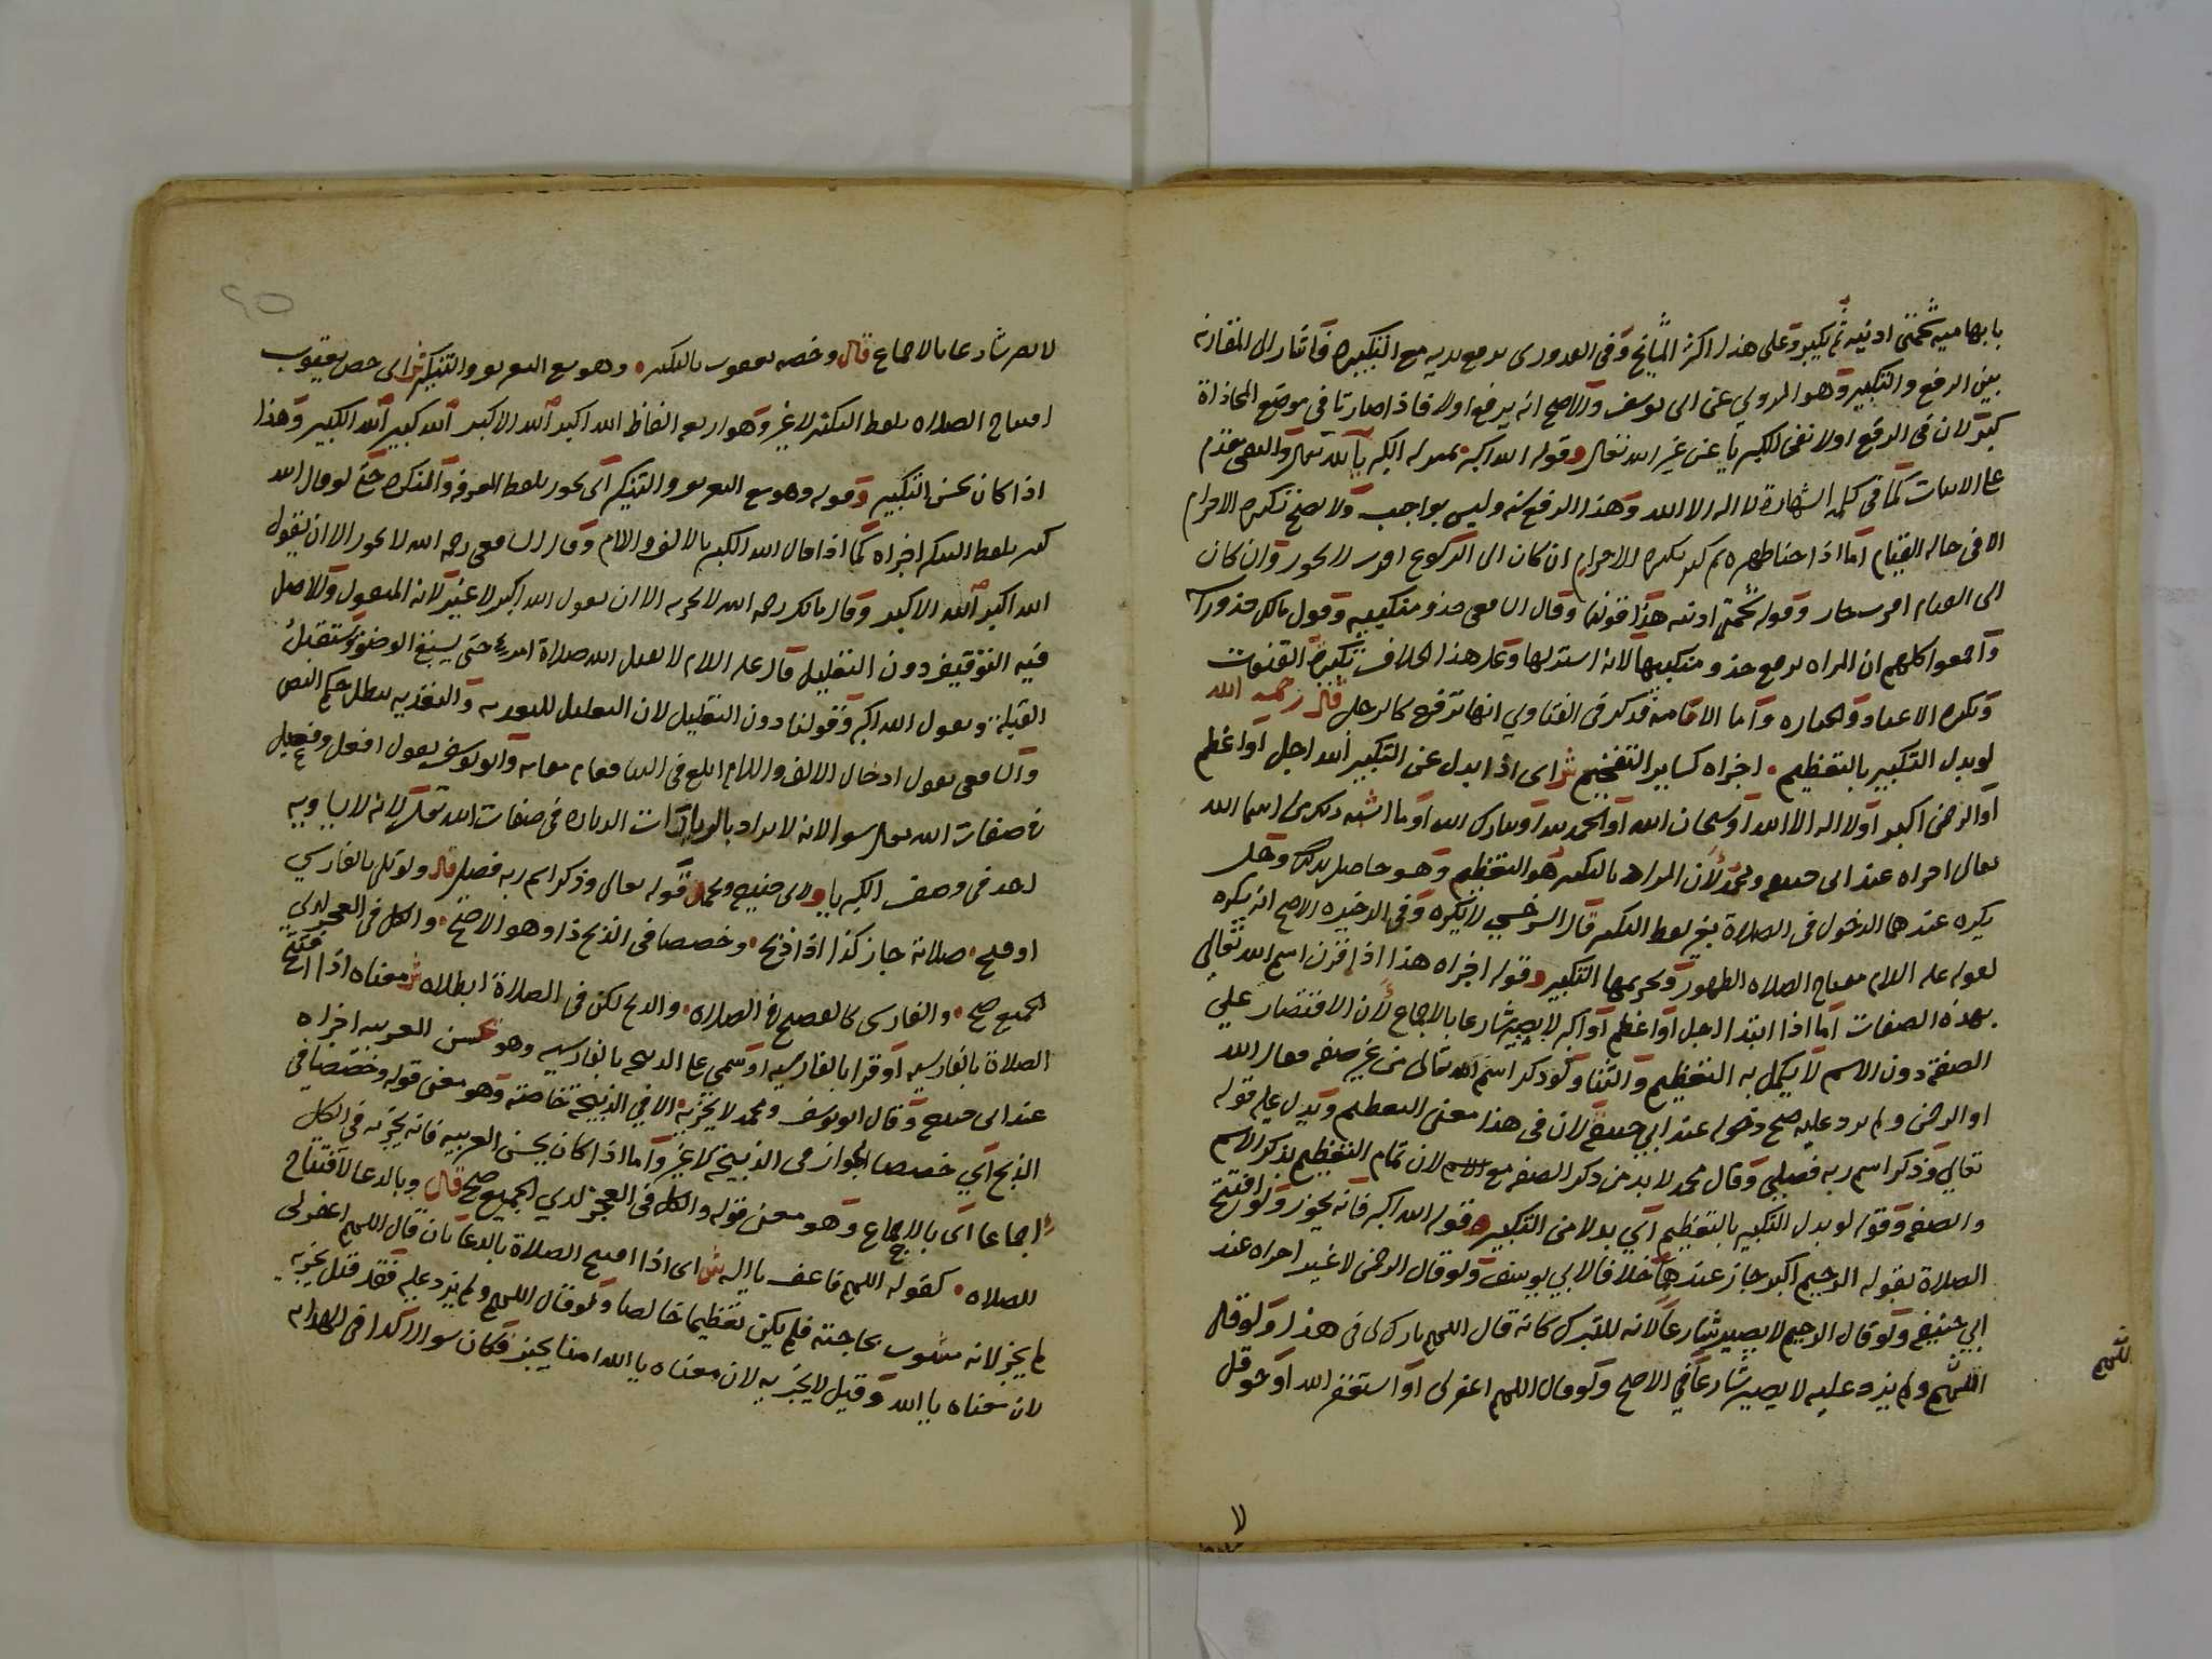 بابهاميه شحمتي اذنيه ثم يكبر وعلى هذا اكثر المشايخ وفي القدوري يرفع يديه مع التكبيرة فاشار الى المقارنة
بين الرفع والتكبير وهو المروي عن ابي يوسف والاصح انه يرفع اولا فاذا صارتا في موضع المحاذاة
كبر لان في الرفع اولا نفي الكبريا عن غير الله تعالى وقوله الله اكبر بمنزلة الكبريا لله تعالى والنفي مقدم
على الاثبات كما في كلمة الشهادة لا اله الا الله وهذا الرفع سنة وليس بواجب ولا يصح تكبيرة الاحرام
الا في حالة القيام اما اذا حنا ظهره ثم كبر تكبيرة الاحرام ان كان الى الركوع اقرب لا يجوز وان كان
الى القيام اقرب جاز وقوله شحمتي اذنيه هذا قولنا وقال الشافعي حذو منكبيه وقول مالك حذو راسه
واجمعوا كلهم ان المراة ترفع حذو منكبيها لانه استر لها وعلى هذا الخلاف تكبيرة القنوت
وتكبيرة الاعياد والجنازة واما الاقامة فذكر في الفتاوي انها ترفع كالرجل قال رحمه الله
لو بدل التكبير بالتعظيم اجزاه كساير التفخيم ش اي اذا بدل عن التكبير الله اجل او اعظم
او الرحمن اكبر او لا اله الا الله او سبحان الله او الحمد لله او تبارك الله او ما اشبه ذلك من اسما الله
تعالى اجزاه عند ابي حنيفة ومحمد لان المراد بالتكبير هو التعظيم وهو حاصل بذلك وهل
يكره عندهما الدخول في الصلاة بغير لفظ التكبير قال السرخسي لا يكره وفي الذخيرة الاصح انه يكره
لقوله عليه السلام مفتاح الصلاه الطهور وتحريمها التكبير وقوله اجزاه هذا اذا قرن اسم الله تعالى
بهذه الصفات اما اذا ابتدا اجل او اعظم او اكبر لا يصير شارعا بالاجماع لان الاقتصار علي
الصفة دون الاسم لا يكمل به التعظيم والثنا ولو ذكر اسم الله تعالى من غير صفة فقال الله
او الرحمن ولم يزد عليه صح دخوله عند ابي حنيفة لان في هذا معنى التعظيم ويدل عليه قوله
تعالي وذكر اسم ربه فصلى وقال محمد لا بد من ذكر الصفة مع الاسم لان تمام التعظيم بذكر الاسم
والصفة وقوله لو بدل التكبير بالتعظيم اي بدلا من التكبير وقوله الله اكبر فانه يجوز ولو افتتح
الصلاة بقوله الرحيم اكبر جاز عندهما خلافا لابي يوسف ولو قال الرحمن لا غير اجزاه عند
ابي حنيفة ولو قال الرحيم لا يصير شارعا لانه للتبرك كانه قال اللهم بارك لي في هذا ولو قال
اللهم ولم يزد عليه لا يصير شارعا في الاصح ولو قال اللهم اغفر لي او استغفر الله او حوقل
لا
لا يصير شارعا بالاجماع قال وخصه يعقوب بالتكبير وهو مع التعريف والتنكير ش اي خص يعقوب
افتتاح الصلاه بلفظ التكبير لا غير وهو اربعة الفاظ الله اكبر الله الاكبر الله كبير الله الكبير وهذا
اذا كان يحسن التكبير وقوله وهو مع التعريف والتنكير اي يجوز بلفظ المعرفة والنكرة حتى لو قال الله
كبير بلفظ التنكير اجزاه كما اذا قال الله الكبير بالالف واللام وقال الشافعي رحمه الله لا يجوز الا ان يقول
الله اكبر الله الاكبر وقال مالك رحمه الله لا يجزيه الا ان يقول الله اكبر لا غير لانه المنقول والاصل
فيه التوقيف دون التعليل قال عليه السلام لا يقبل الله صلاة امرئ حتى يسبغ الوضوء ويستقبل
القبلة ويقول الله اكبر وقولنا دون التعليل لان التعليل للتعدية والتعدية تبطل حكم النص
والشافعي يقول ادخال الالف واللام ابلغ في الثنا فقام مقامه وابو يوسف يقول افعل وفعيل
في صفات الله تعالى سوا لانه لا يراد اثبات الزيادة في صفات الله تعالى لانه لا يساويه
احد في وصف الكبريا ولابي حنيفة ومحمد قوله تعالى وذكر اسم ربه فصلى قال ولو تلى بالفارسي
او فتح صلاته جاز كذا اذا ذبح وخصصا في الذبح ذا وهو الاصح والكل في العجز لدي
الجميع صح والفارسي كالفصيح في الصلاة والذبح لكن في الصلاة ابطلاه ش معناه اذا افتتح
الصلاة بالفارسية او قرا بالفارسية او سمى على الذبيحة بالفارسية وهو يحسن العربية اجزاه
عند ابي حنيفة وقال ابو يوسف ومحمد لا يجزيه الا في الذبيحة خاصة وهو معنى قوله وخصصا في
الذبح اي خصصا الجواز في الذبيحة لا غير واما اذا كان لا يحسن العربيه فانه يجزيه في الكل
اجماعا اي بالاجماع وهو معنى قوله والكل في العجز لدي الجميع صح قال وبالدعا لا افتتاح
للصلاه كقوله اللهم فاعف يا اله ش اي اذا افتتح الصلاة بالدعا بان قال اللهم اغفر لي
لم يجز لانه مشوب بحاجته فلم يكن تعظيما خالصا ولو قال اللهم ولم يزد عليه فقد قيل يجزيه
لان معناه يا الله وقيل لا يجزيه لان معناه يا الله امنا بخير فكان سوالا كذا في الهدايه